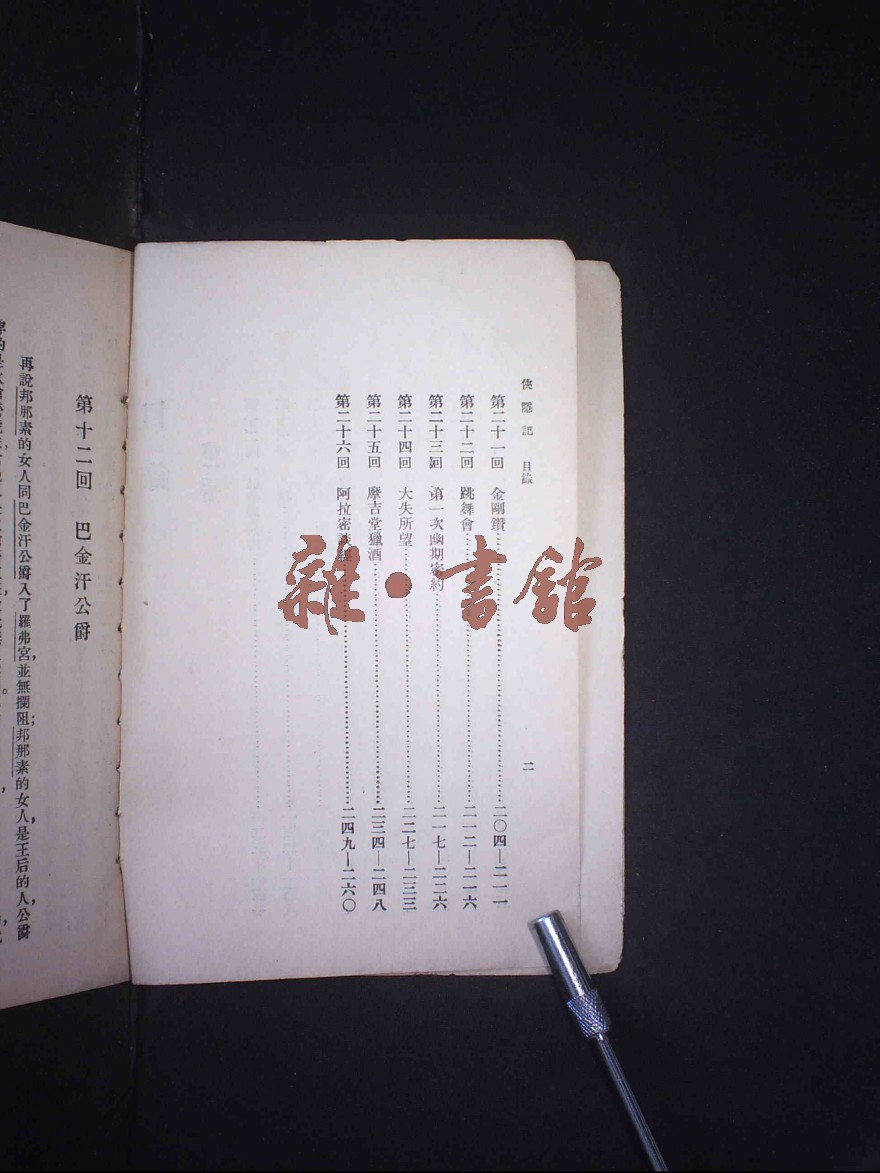 俠隱記 目錄 二
第二十一回 金剛鑽……二〇四—二一一
第二十二回 跳舞會……二一二—二一六
第二十三回 第一次幽期密約……二一七—二二六
第二十四回 大失所望……二二七—二三三
第二十五回 摩吉堂獵酒……二三四—二四八
第二十六回 阿拉密談經……二四九—二六〇
雜•書館
第十二回 巴金汗公爵
再說邦那素的女人同巴金汗公爵入了羅弗宮，並無攔阻；邦那素的女人，是王后的人，公爵